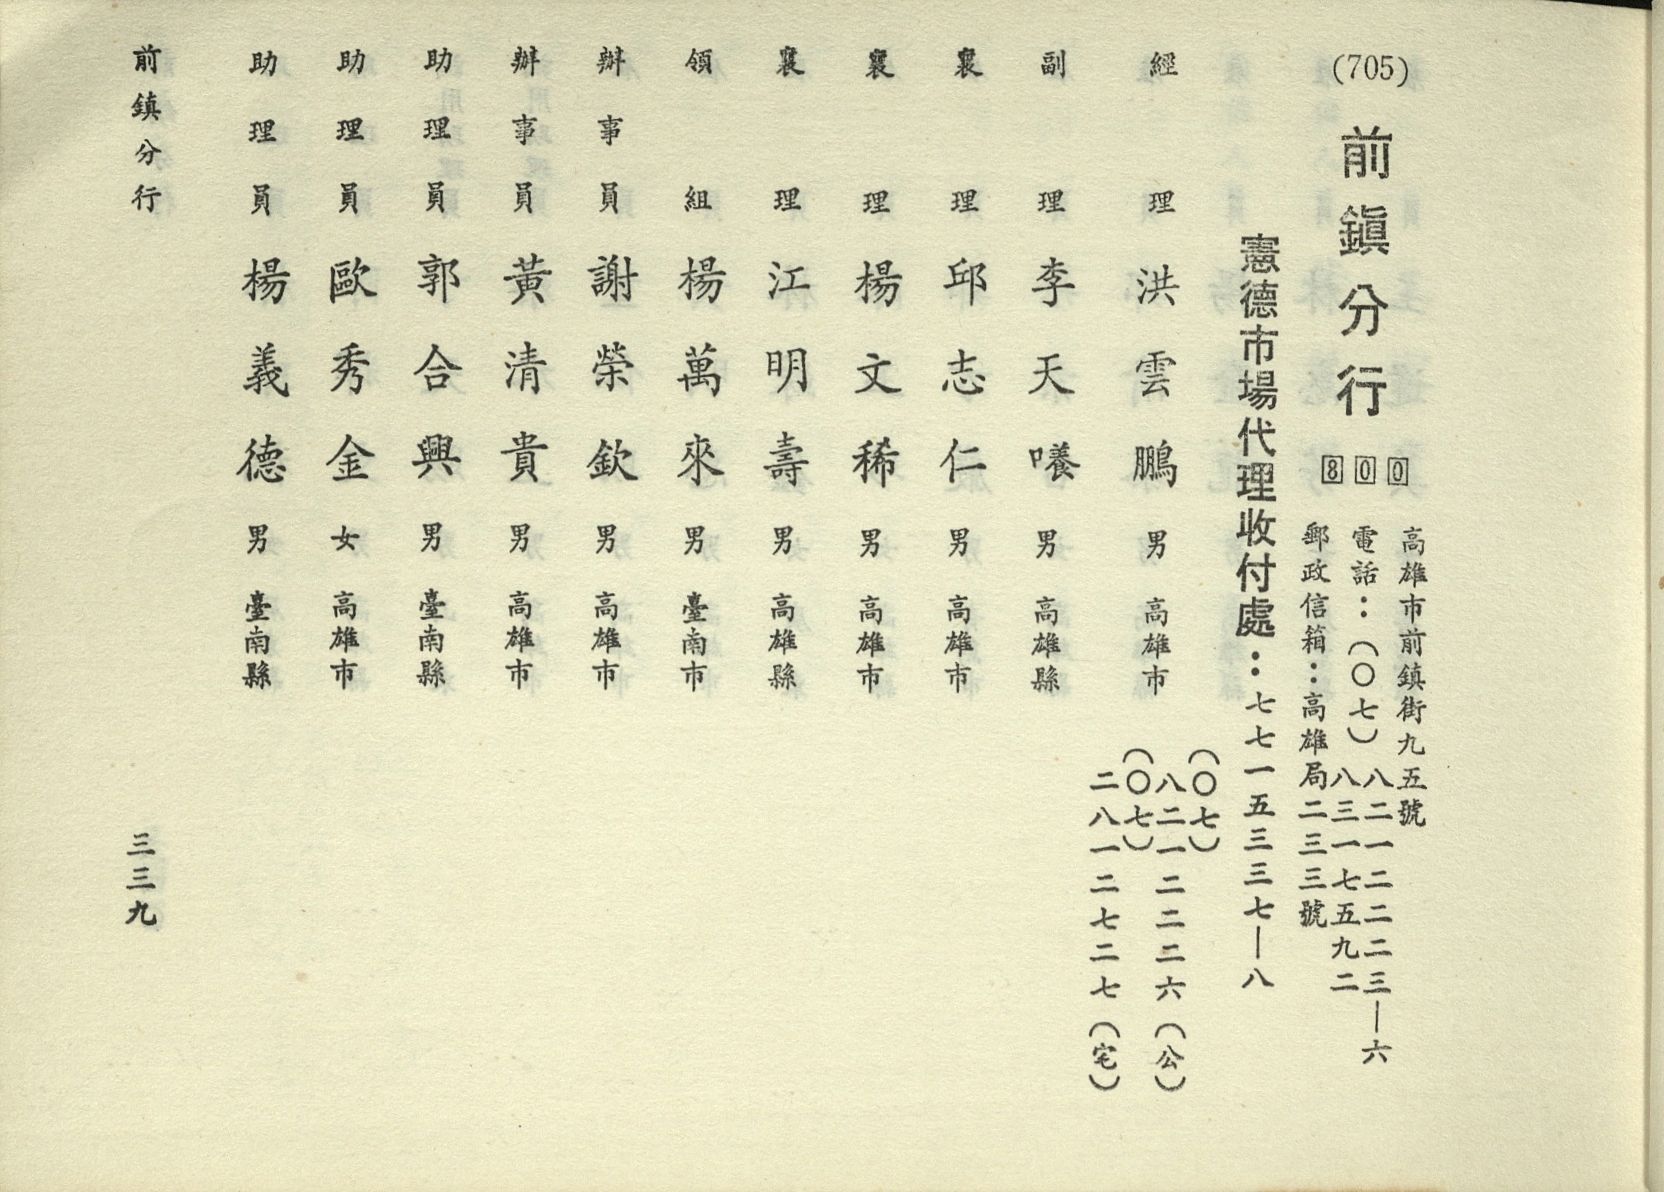 (705) 前鎮分行 800
高雄市前鎮街九五號
電話：（〇七）八二一二二二三—六
八三一七五九二
郵政信箱：高雄局二三三號
憲德市場代理收付處：七七一五三三七—八
經理 洪雲鵬 男 高雄市 （〇七）八二一二二二六（公）
（〇七）二八一二七二七（宅）
副理 李天㬢 男 高雄縣
襄理 邱志仁 男 高雄市
襄理 楊文稀 男 高雄市
襄理 江明壽 男 高雄縣
領組 楊萬來 男 臺南市
辦事員 謝榮欽 男 高雄市
辦事員 黃清貴 男 高雄市
助理員 郭合興 男 臺南縣
助理員 歐秀金 女 高雄市
助理員 楊義德 男 臺南縣
前鎮分行
三三九